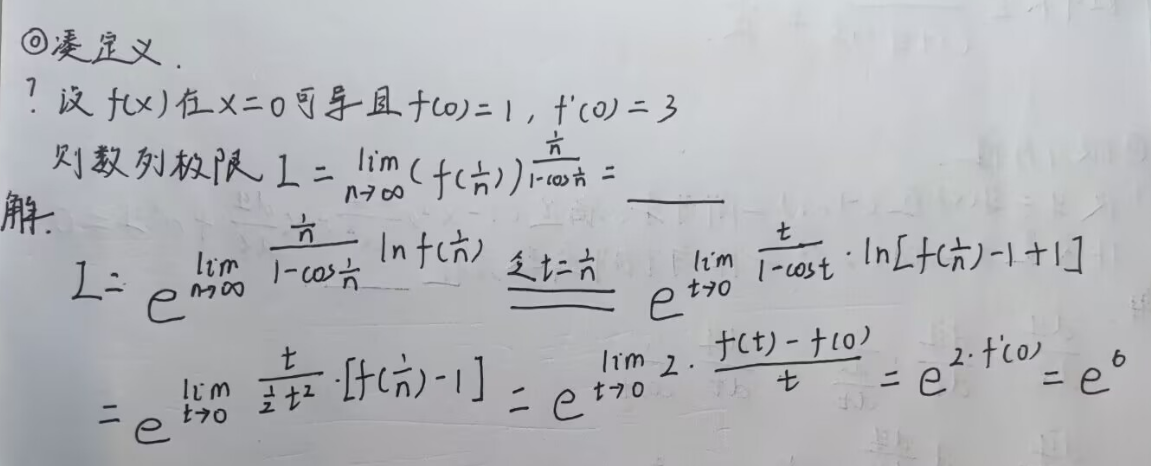 ◎凑定义.
? 设 f(x) 在 x=0 可导且 f(0)=1, f'(0)=3
则数列极限 I = lim_{n→∞} (f(1/n))^{(1/n)/(1-cos 1/n)} = ____
解. I = e^{lim_{n→∞} (1/n)/(1-cos 1/n) ln f(1/n)} 令t=1/n e^{lim_{t→0} t/(1-cost) · ln[f(1/n)-1+1]}
= e^{lim_{t→0} t/(1/2 t²) · [f(1/n)-1]} = e^{lim_{t→0} 2 · (f(t)-f(0))/t} = e^{2·f'(0)} = e^6